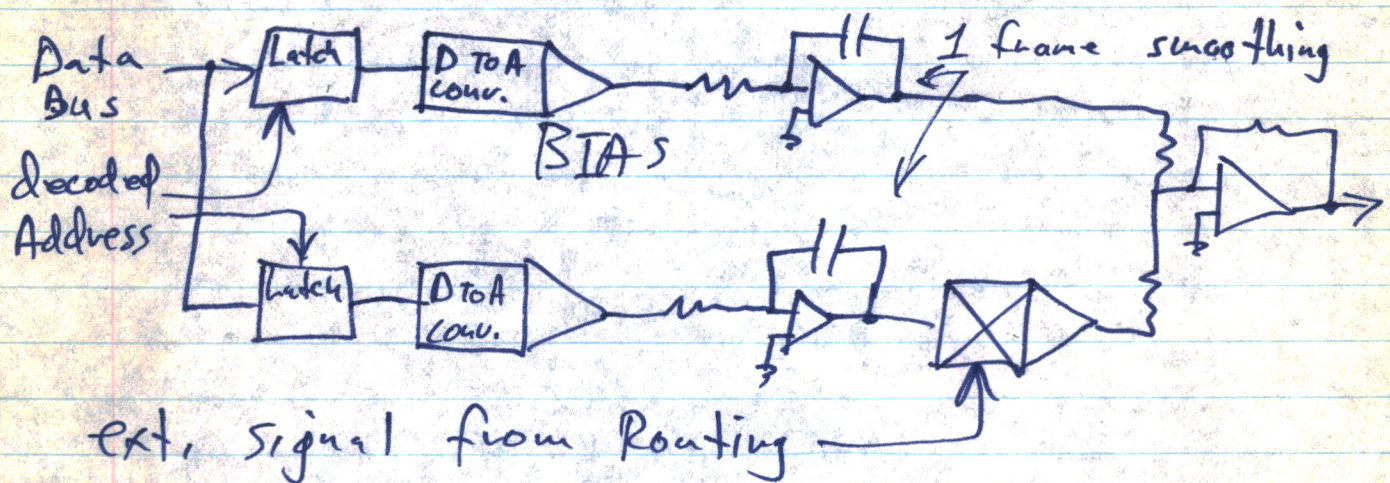 Data
Bus
Latch
D To A
conv.
1 frame smoothing
BIAS
decoded
Address
Latch
D To A
conv.
ext. signal from Routing